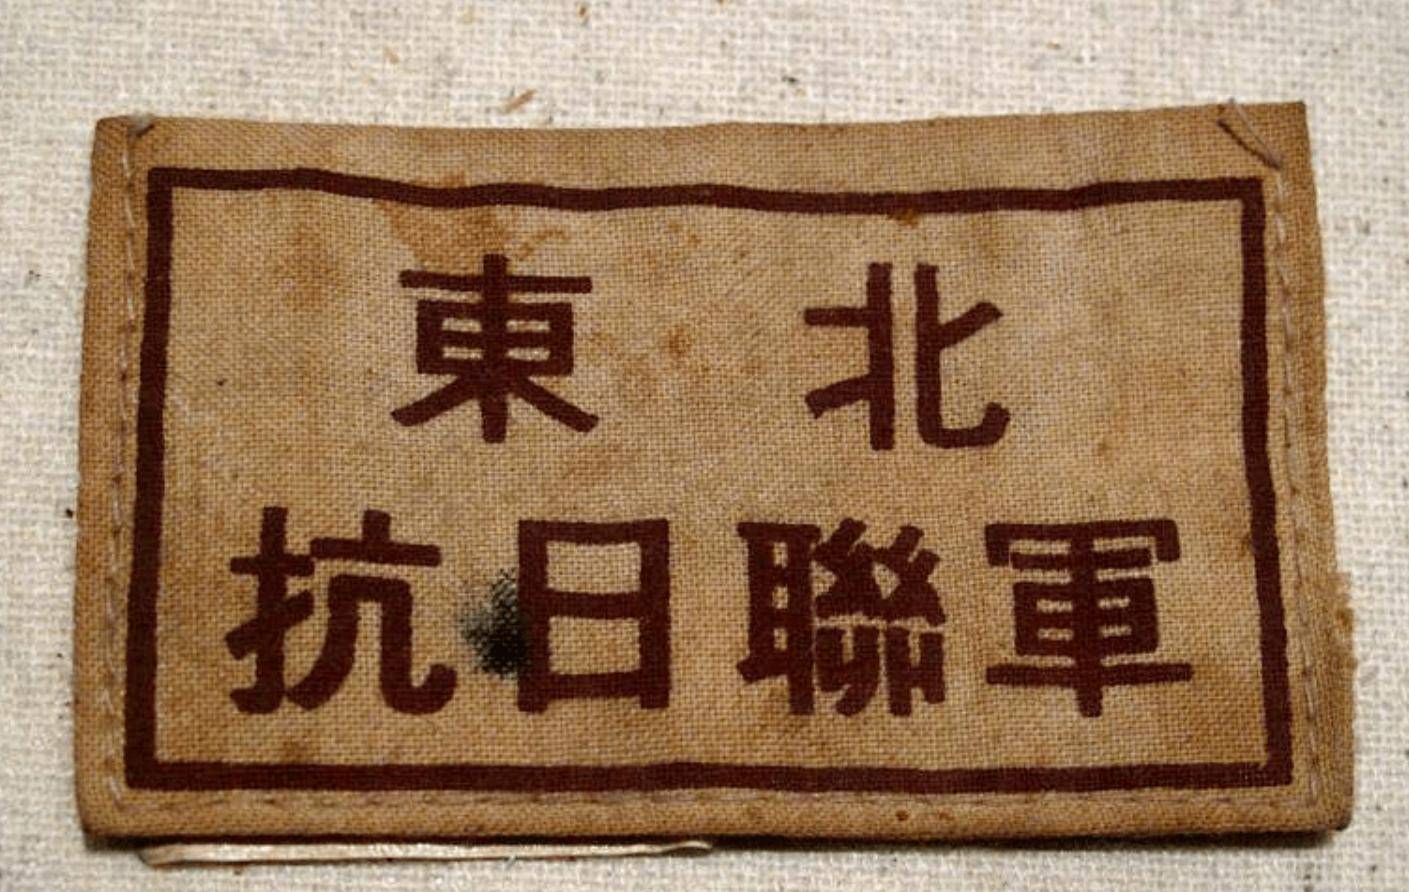 東北
抗日聯軍